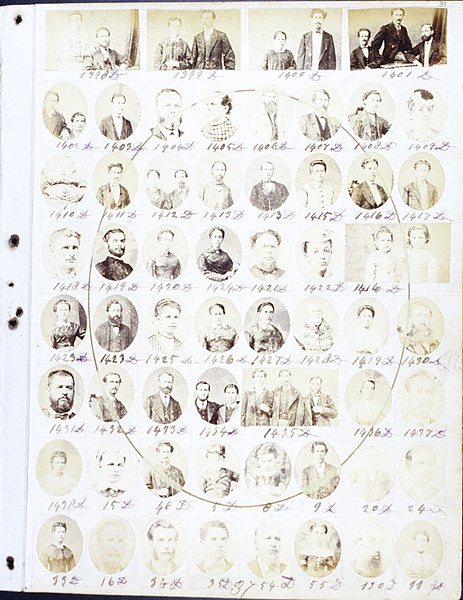 31
1398 D 1399 D 1400 D 1401 D
1402 D 1403 D 1404 D 1405 D 1406 D 1407 D 1408 D 1409 D
1410 D 1411 D 1412 D 1413 D 1413 D 1415 D 1416 D 1417 D
1418 D 1419 D 1420 D 1424 D 1421 D 1422 D 1414 D
1423 D 1423 D 1425 D 1426 D 1427 D 1428 D 1429 D 1430 D
1431 D 1432 D 1433 D 1434 D 1435 D 1436 D 1437 D
1438 D 15 D 46 D 5 D 8 D 9 D 20 D 24 D
33 D 16 D 34 D 35 D 37 54 D 55 D 130 D